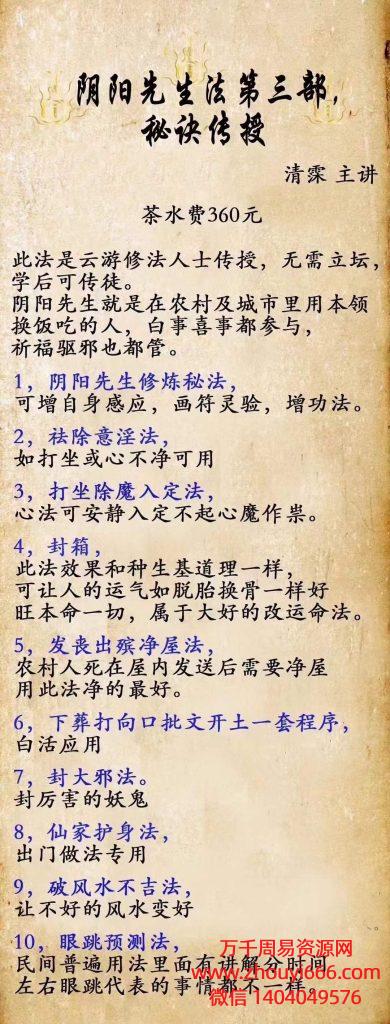 阴阳先生法第三部,
秘诀传授
清霂 主讲
茶水费360元
此法是云游修法人士传授，无需立坛，
学后可传徒。
阴阳先生就是在农村及城市里用本领
换饭吃的人，白事喜事都参与，
祈福驱邪也都管。
1，阴阳先生修炼秘法，
可增自身感应，画符灵验，增功法。
2，祛除意淫法，
如打坐或心不净可用
3，打坐除魔入定法，
心法可安静入定不起心魔作祟。
4，封箱，
此法效果和种生基道理一样，
可让人的运气如脱胎换骨一样好
旺本命一切，属于大好的改运命法。
5，发丧出殡净屋法，
农村人死在屋内发送后需要净屋
用此法净的最好。
6，下葬打向口批文开土一套程序，
白活应用
7，封大邪法。
封厉害的妖鬼
8，仙家护身法，
出门做法专用
9，破风水不吉法，
让不好的风水变好
10，眼跳预测法，
民间普遍用法里面有讲解分时间
左右眼跳代表的事情都不一样。
万千周易资源网
www.zhouyi666.com
微信 1404049576